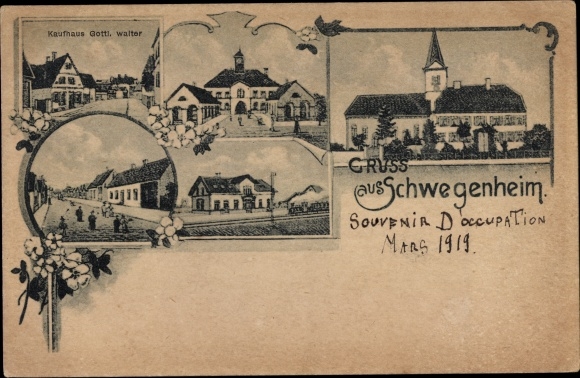 Kaufhaus Gottl. walter
GRUSS
aus Schwegenheim.
SOUVENIR D'OCCUPATION
MARS 1919.